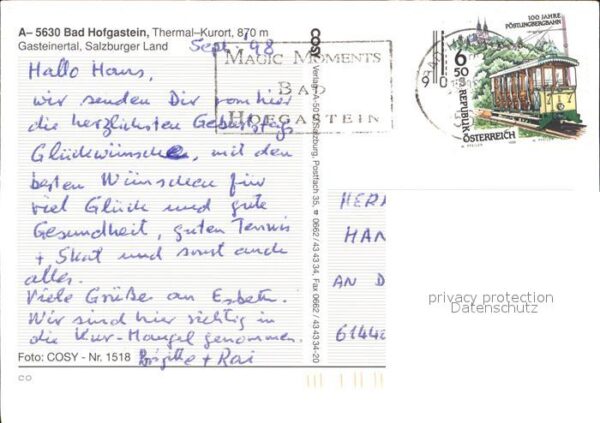 A– 5630 Bad Hofgastein, Thermal-Kurort, 870 m
Gasteinertal, Salzburger Land
Sept. '98
Hallo Hans,
wir senden Dir von hier
die herzlichsten Geburtstags
Glückwünsche, mit den
besten Wünschen für
viel Glück und gute
Gesundheit, guten Tennis
+ Skat und sonst auch
alles.
Viele Grüße an Esbeth.
Wir sind hier richtig in
die Kur-Mangel genommen.
Brigitte + Rai
Foto: COSY - Nr. 1518
COSY Verlag, A-50 Salzburg, Postfach 35, 0662/43 43 34, Fax 0662/43 43 34-20
MAGIC MOMENTS
BAD
HOFGASTEIN
100 JAHRE
PÖSTLINGBERGBAHN
6 50
S
REPUBLIK
ÖSTERREICH
HER
HAN
AN D
6144
privacy protection
Datenschutz